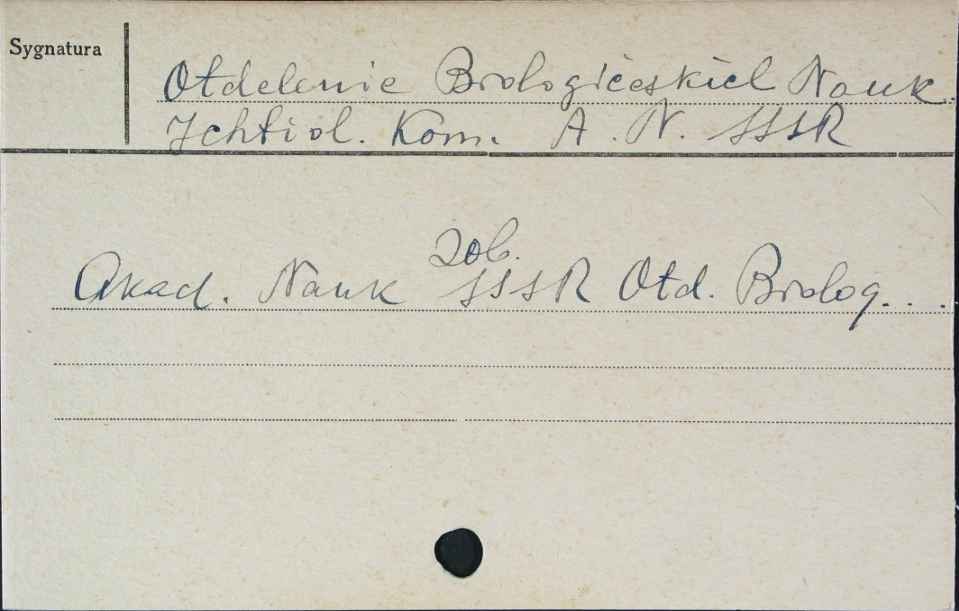 Sygnatura
Otdelenie Biologičeskich Nauk.
Ichtiol. Kom. A. N. SSSR
zob.
Akad. Nauk SSSR Otd. Biolog...